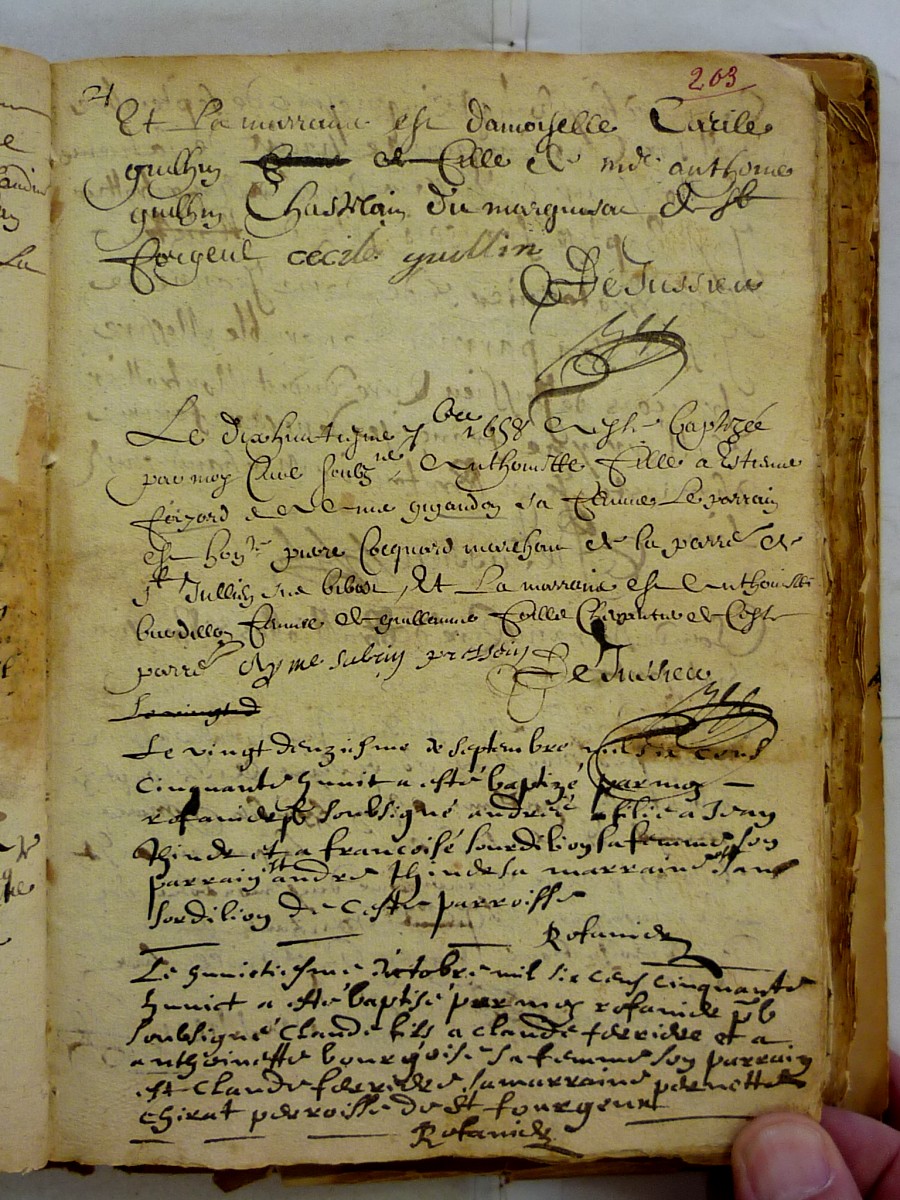 203
Et La marraine est damoyselle Cecile
guillin de fille de mre anthoine
guillin Chastelain du marquisac de st
forgeul cecile guillin
DeJussieu
Le dixhuictiesme 7bre 1658 a esté baptizée
par moy Curé soubzne Anthoinette fille a Estienne
sa femme Le parrain
est honle pierre Cocquard marchant de la parre de
st Jullien sur bibost, Et La marraine est Anthoinette
femme de guillaume Charpentier de Ceste
parre
DeJussieu
Le vingt d
Le vingt deuziesme de septembre mil six cens
cinquante huuit a esté baptizé par moy
rofanide pb soubsigné andréé fillie a Jean
thinde et a francoise sourdillion sa femme son
parrain st andre thinde sa marraine
sordilion de ceste parroisse
Rofanide
Le huuictiesme octobre mil six cens cinquante
huuict a esté baptisé par moy rofanide pb
soubsigné claude fils a claude ferriere et a
anthoinette bourgoise sa femme son parrain
est claude ferriere sa marraine pernette
chirat parroisse de st fourgeux
Rofanide